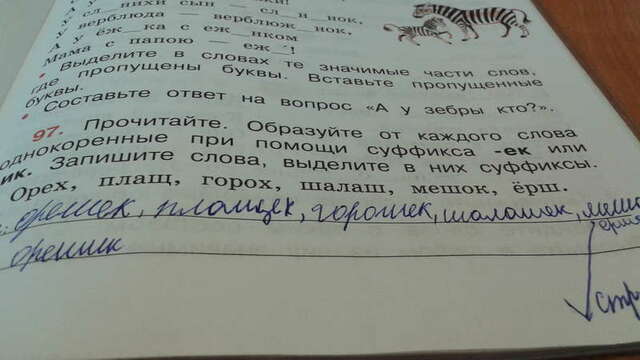 у сл__нихи сын — сл__н__нок,
У верблюда — верблюж__нок,
А у ёж__ка с еж__нком
Мама с папою — еж__!
• Выделите в словах те значимые части слов,
где пропущены буквы. Вставьте пропущенные
буквы.
• Составьте ответ на вопрос «А у зебры кто?».
97. Прочитайте. Образуйте от каждого слова
однокоренные при помощи суффикса -ек или
ик. Запишите слова, выделите в них суффиксы.
Орех, плащ, горох, шалаш, мешок, ёрш.
орешек, плащек, горошек, шалашек,
орешик
стр